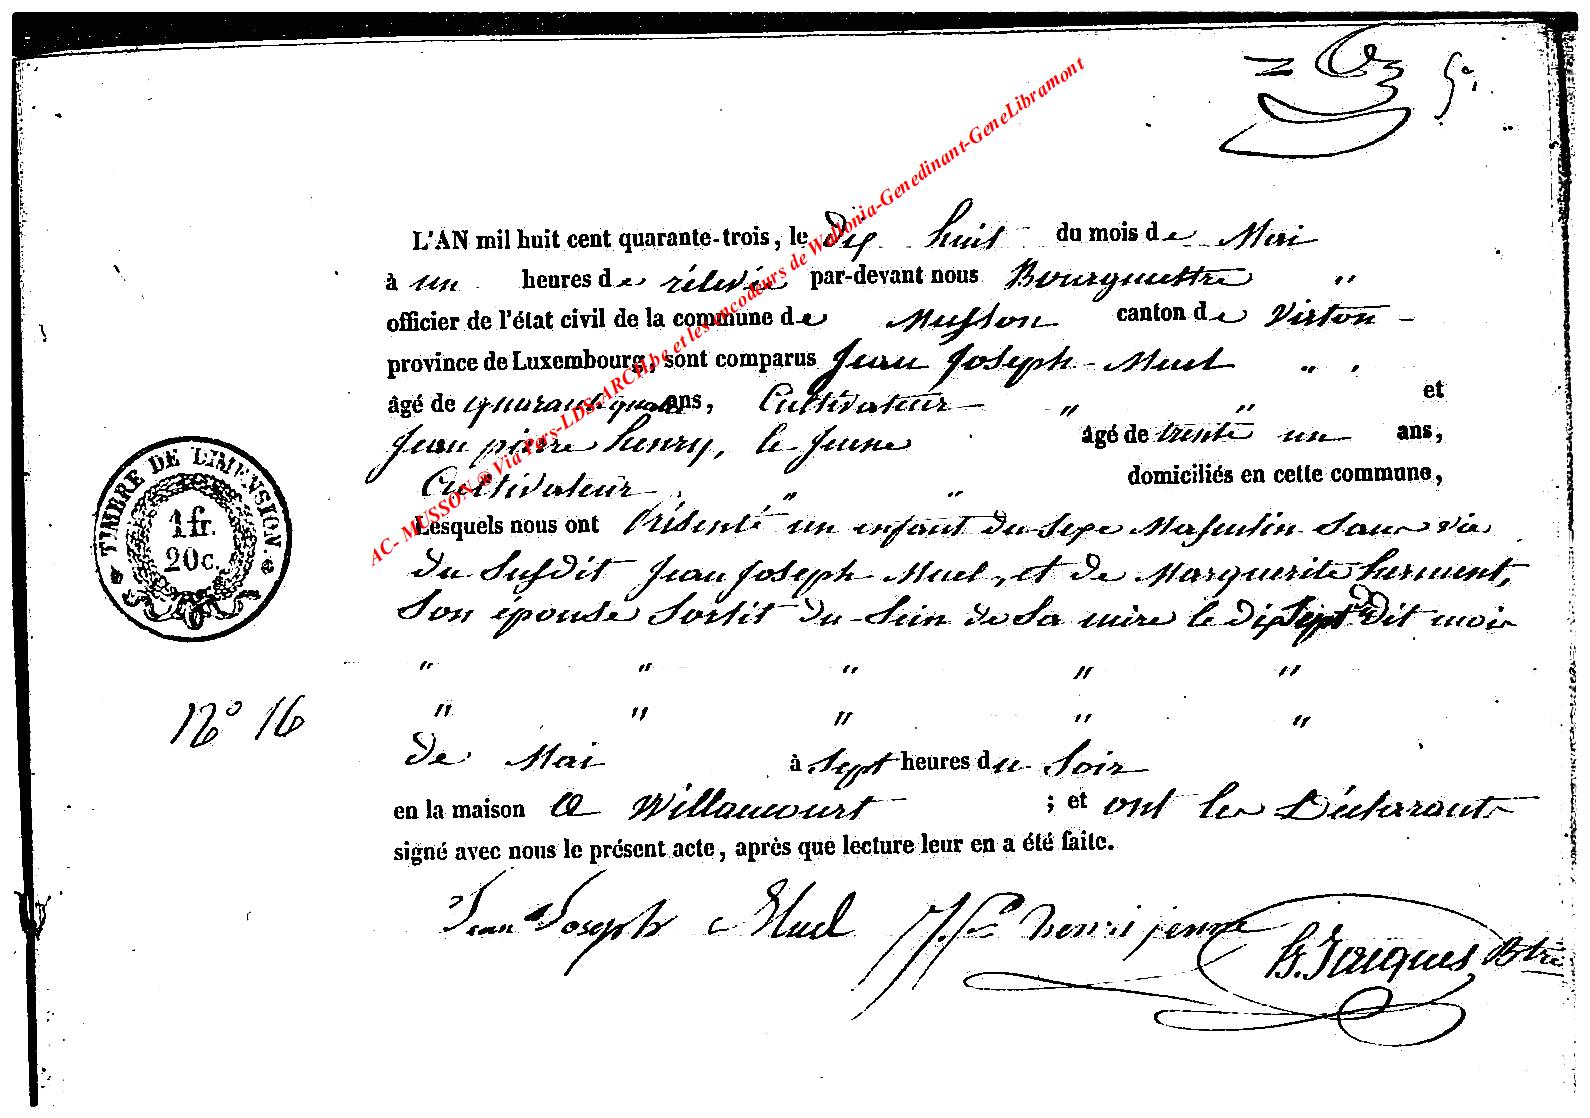 5e.
L'AN mil huit cent quarante-trois, le dix huit du mois de Mai
à un heures de rélevée par-devant nous Bourgmestre "
officier de l'état civil de la commune de Musson canton de Virton -
province de Luxembourg, sont comparus Jean Joseph - Muel " .
âgé de quarante quatre ans, Cultivateur " " et
Jean pierre henry, le Jeune âgé de trente un ans,
Cultivateur " " domiciliés en cette commune,
Lesquels nous ont Présenté un enfant du Sexe Masculin Sans vie
du Susdit Jean Joseph Muel, et de Marguerite herment,
Son épouse Sortit du Sein de Sa mère le dix Sept dudit mois
" " " " "
" " " " "
de Mai à Sept heures du Soir
en la maison a Willancourt ; et ont les Déclarants
signé avec nous le présent acte, après que lecture leur en a été faite.
Jean Joseph Muel J. P. henri jeune B. Jacques Btre
TIMBRE DE DIMENSION.
1 fr.
20 c.
No 16
AC- MUSSON ® Via Pers-LDS-ARCH.be et les encodeurs de Wallonia-Genedinant-GeneLibramont